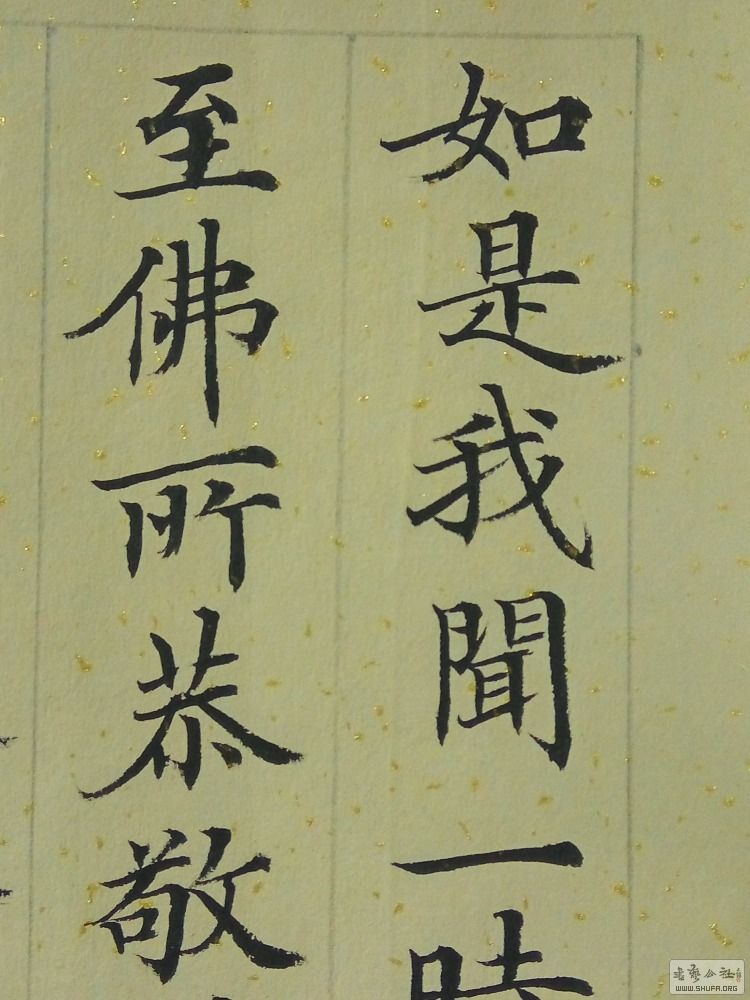 如是我聞一時
至佛所恭敬
WWW.SHUFA.ORG